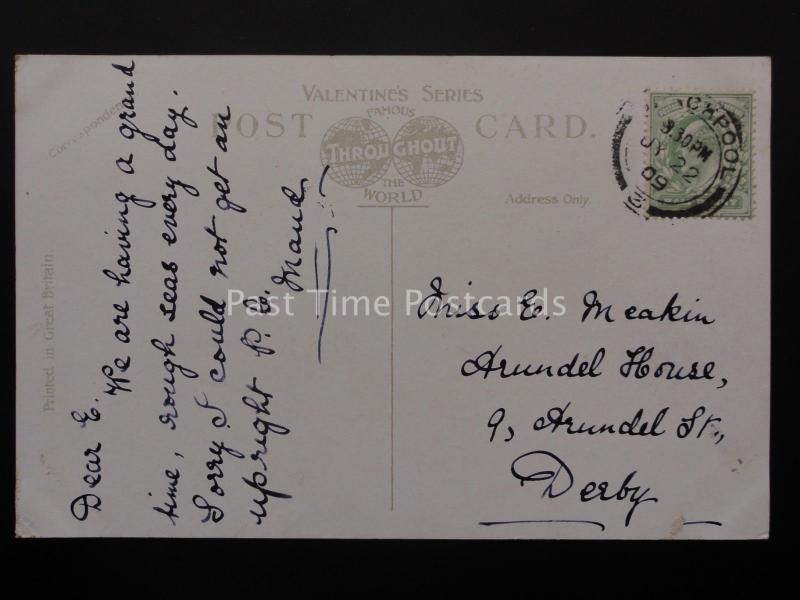 VALENTINE'S SERIES
FAMOUS
POST CARD.
THROUGHOUT
THE
WORLD
Correspondence
Address Only.
Printed in Great Britain.
BLACKPOOL
9.30 PM
JY 22
09
Dear E.
We are having a grand
time, rough seas every day.
Sorry I could not get an
upright P.C. Maud
Miss E. Meakin
Arundel House,
9, Arundel St.,
Derby
Past Time Postcards